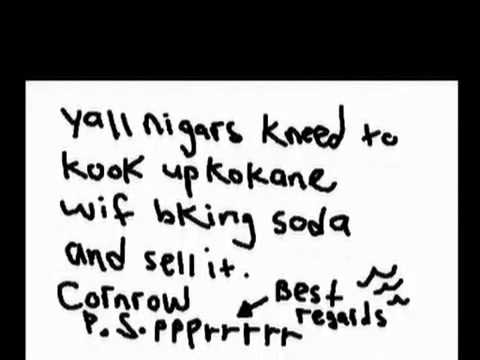 yall nigars kneed to
kook up kokane
wif bking soda
and sell it.
Cornrow
Best regards
P.S. ppprrrrr